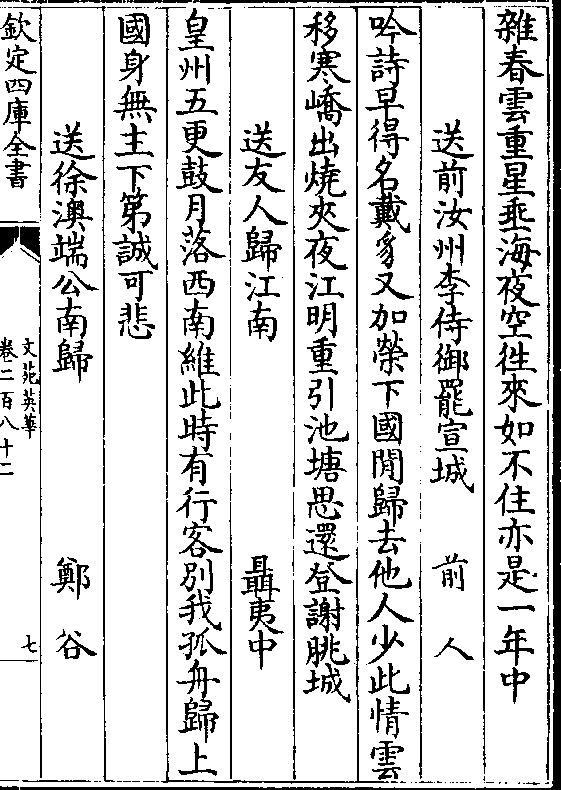 雜春雲重星垂海夜空徃來如不住亦是一年中
送前汝州李侍御罷宣城 前人
吟詩早得名戴豸又加榮下國閒歸去他人少此情雲
移寒嶠出燒夾夜江明重引池塘思還登謝朓城
送友人歸江南 聶夷中
皇州五更鼓月落西南維此時有行客別我孤舟歸上
國身無主下第誠可悲
送徐澳端公南歸 鄭谷
欽定四庫全書
文苑英華
卷二百八十二
七